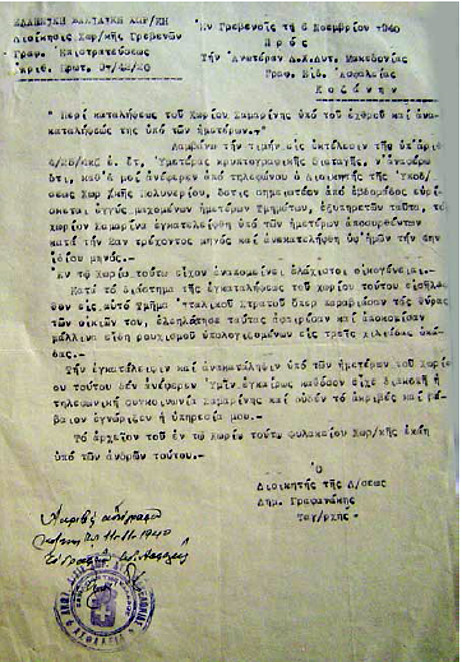 ΕΛΛΗΝΙΚΗ ΒΑΣΙΛΙΚΗ ΧΩΡ/ΚΗ
Διοίκησις Χωρ/κῆς Γρεβενῶν
Γραφ. Ἐπιστρατεύσεως
Ἀριθ. Πρωτ. 97/42/20
Ἐν Γρεβενοῖς τῇ 6 Νοεμβρίου 1940
Π ρ ό ς
Τήν Ἀνωτέραν Δ.Χ.Δυτ. Μακεδονίας
Γραφ. Εἰδ. Ἀσφαλείας
Κ ο ζ ά ν η ν
" Περί καταλήψεως τοῦ Χωρίου Σαμαρίνης ὑπό τοῦ ἐχθροῦ καί ἀνα-
καταλήψεώς της ὑπό τῶν ἡμετέρων."
Λαμβάνω τήν τιμήν εἰς ἐκτέλεσιν τῆς ὑπ'ἀριθ
ἐ. ἔτ. Ὑμετέρας κρυπτογραφικῆς διαταγῆς, ν'ἀναφέρω
ὅτι, καθ'ἅ μοί ἀνέφερεν ἀπό τηλεφώνου ὁ Διοικητής τῆς Ὑποδ/
σεως Χωρ/κῆς Πολυνερίου, ὅστις σημειωτέον ἀπό ἑβδομάδος εὑρί
σκεται ἐγγύς μαχομένων ἡμετέρων Τμημάτων, ἐξυπηρετῶν ταῦτα, τό
χωρίον Σαμαρίνα ἐγκατελείφθη ὑπό τῶν ἡμετέρων ἀποσυρθέντων
κατά τήν 2αν τρέχοντος μηνός καί ἀνακατελήφθη ὑφ'ἡμῶν τήν 6ην
ἰδίου μηνός.-
Ἐν τῷ Χωρίῳ τούτῳ εἶχον ἀπομείνει ἐλάχισται οἰκογένειαι.-
Κατά τό διάστημα τῆς ἐγκαταλήψεως τοῦ χωρίου τούτου εἰσῆλ
θον εἰς αὐτό Τμῆμα Ἰταλικοῦ Στρατοῦ ὅπερ παραβιάσαν τάς θύρας
τῶν οἰκιῶν του, ἐλεηλάτησε ταύτας ἀφαιρέσαν καί ἀποκομίσαν
μάλλινα εἴδη ρουχισμοῦ ὑπολογιζόμενα εἰς τρεῖς χιλιάδας ὀκά
δας.-
Τήν ἐγκατάλειψιν καί ἀνακατάληψιν ὑπό τῶν ἡμετέρων τοῦ Χωρί
ου τούτου δέν ἀνέφερον Ὑμῖν ἐγκαίρως καθόσον εἶχε διακοπῆ ἡ
τηλεφωνική συγκοινωνία Σαμαρίνης καί οὐδέν τό ἀκριβές καί βέ
βαιον ἐγνώριζεν ἡ ὑπηρεσία μου.-
Τό ἀρχεῖον τοῦ ἐν τῷ Χωρίῳ τούτῳ φυλακείου Χωρ/κῆς ἐκάη
ὑπό τῶν ἀνδρῶν τούτου.-
Ὁ
Διοικητής τῆς Δ/σεως
Δημ. Γραφανάκης
Ταγ/ρχης
Ἀκριβές ἀντίγραφον
11-11-1940
ΑΣΦΑΛΕΙΑ